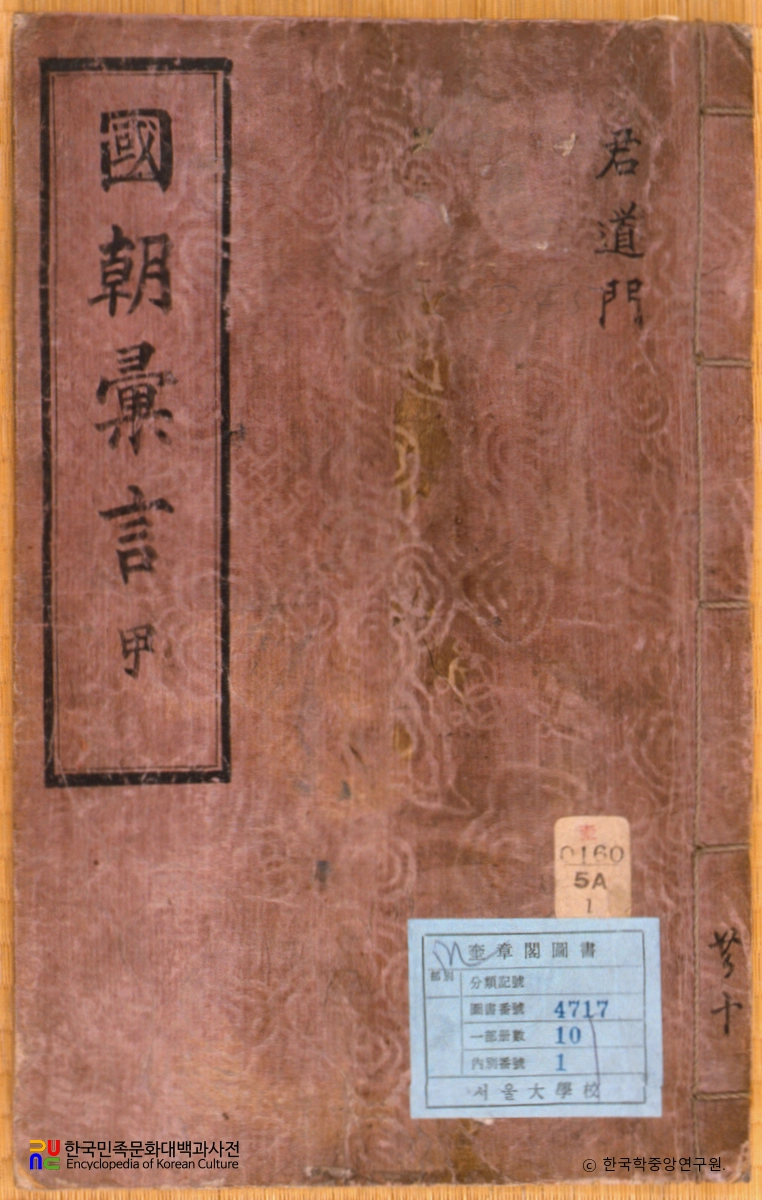 國朝彙言 甲
君道門
奎
0160
5A
1
奎章閣圖書
部別
分類記號
圖書番號 4717
一部册數 10
內別番號 1
서울大學校
共十
한국민족문화대백과사전
Encyclopedia of Korean Culture
© 한국학중앙연구원.